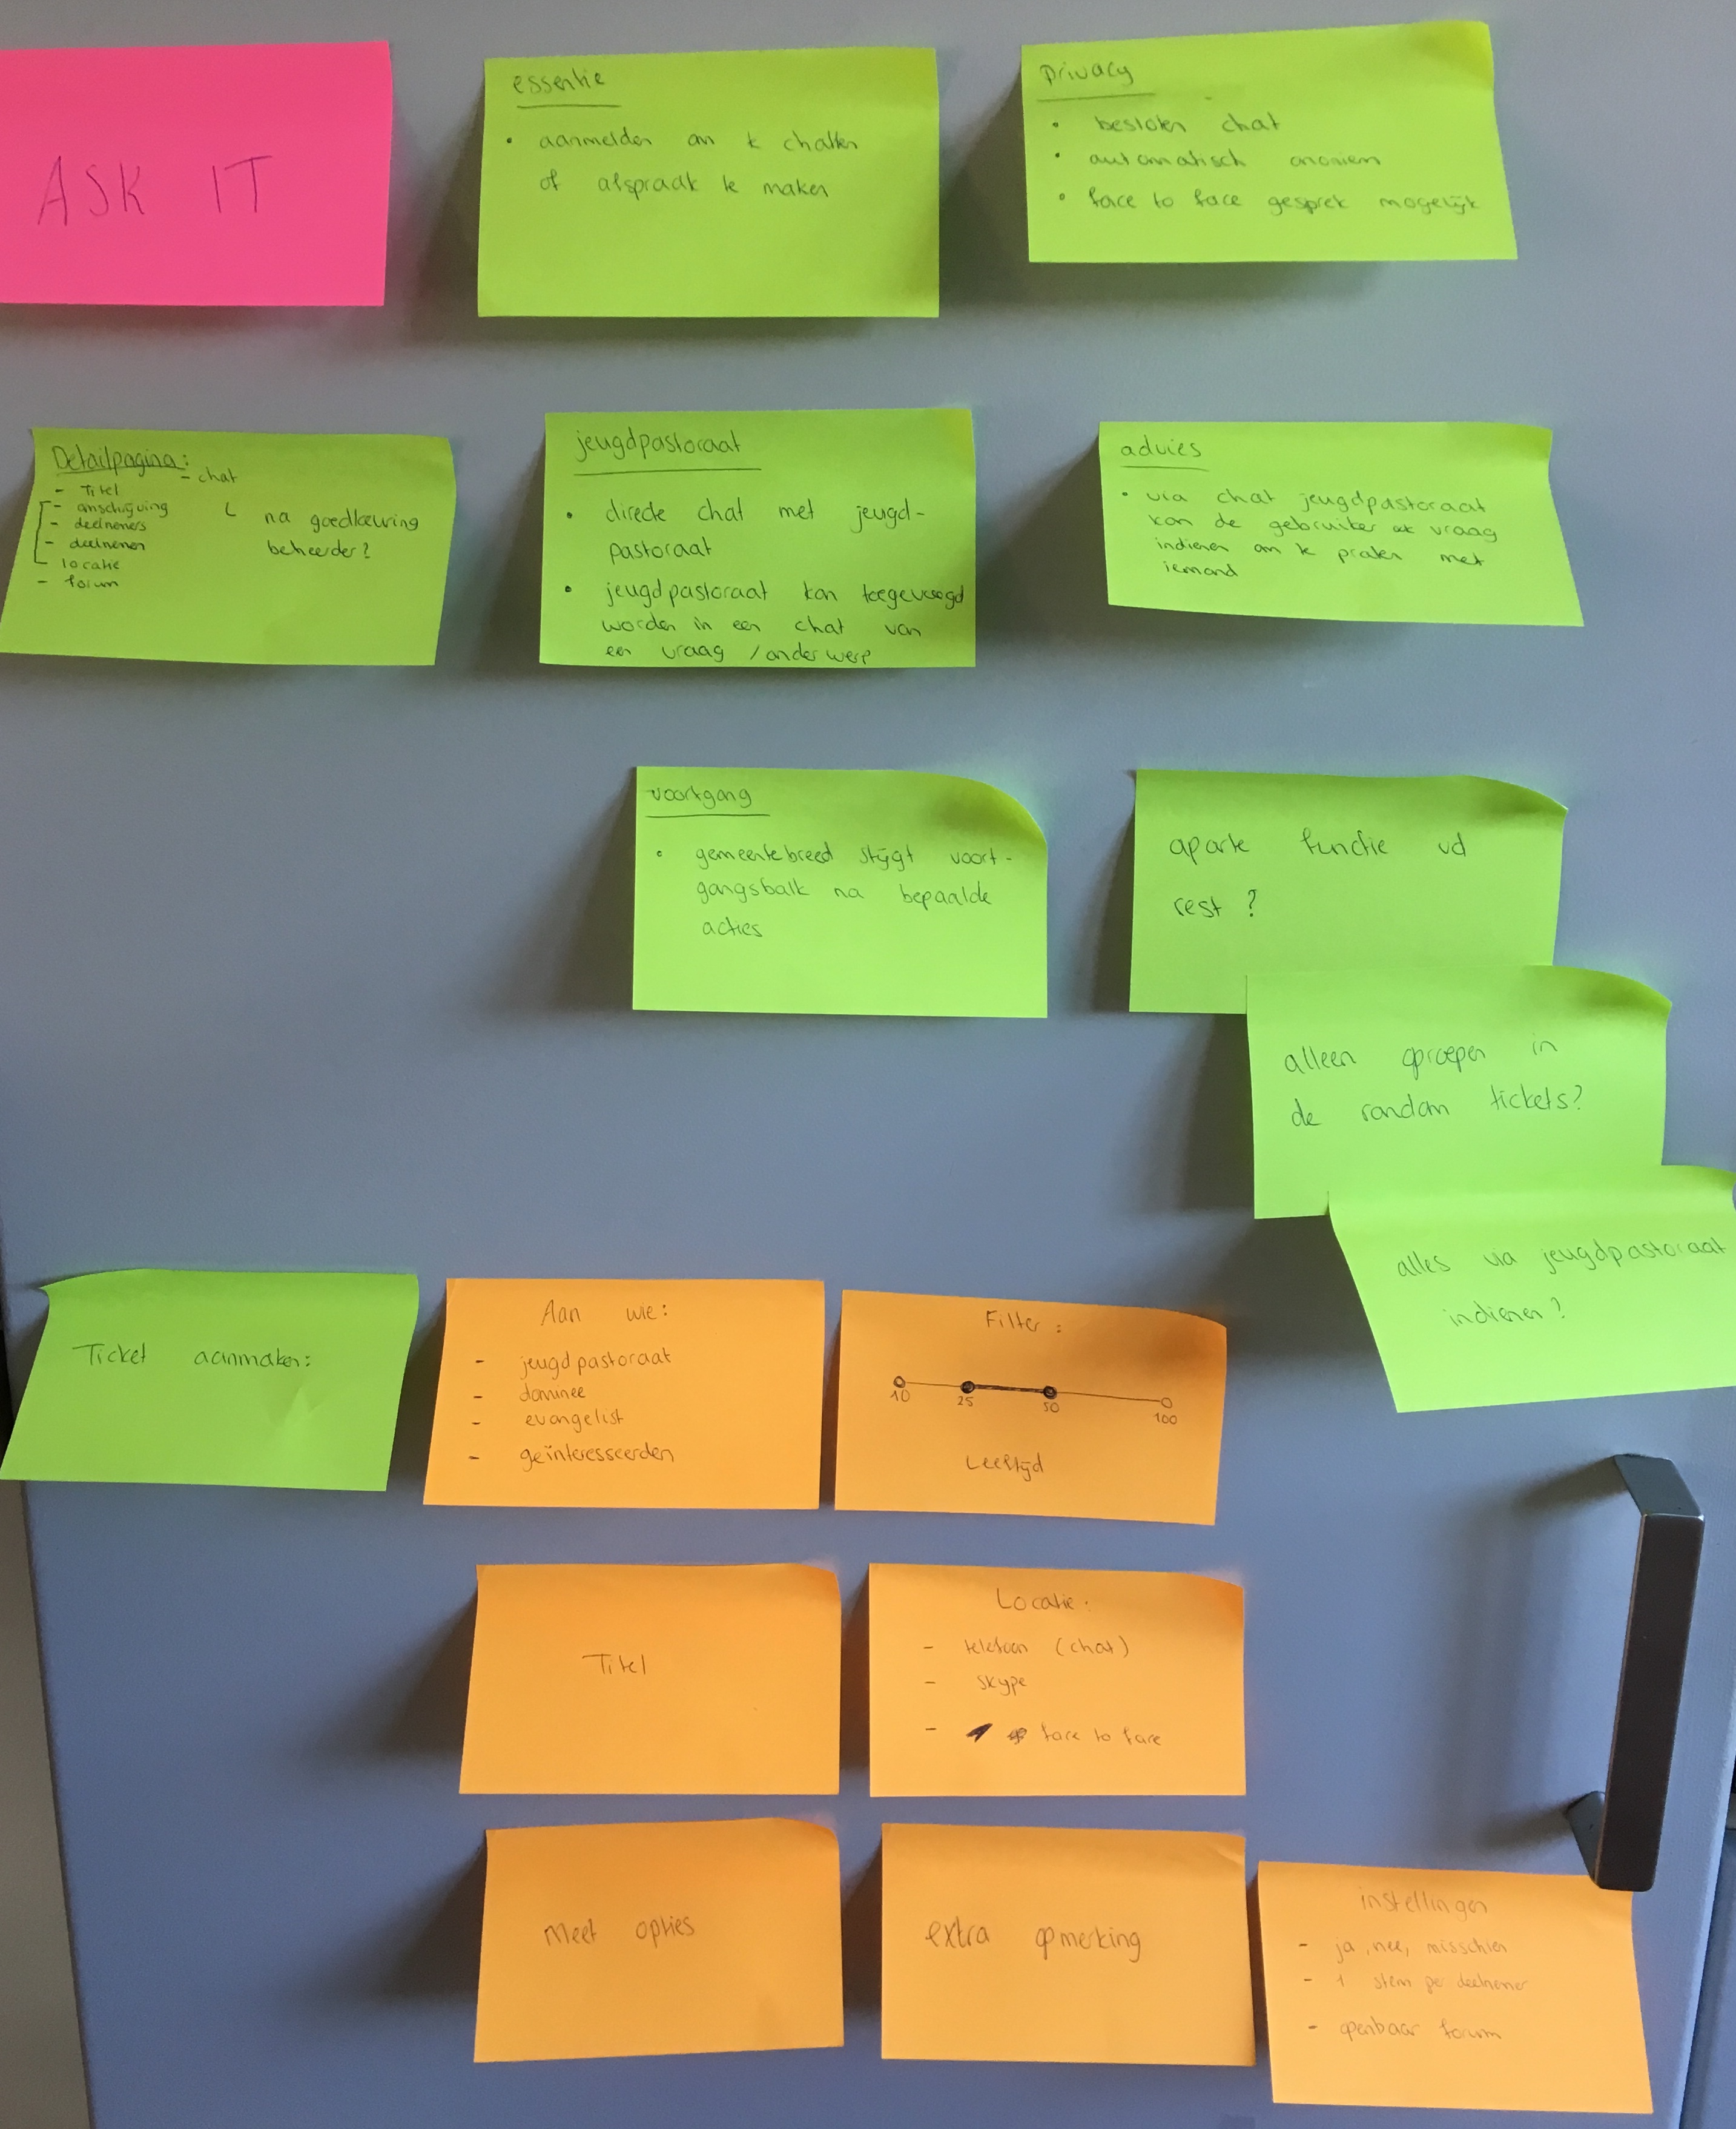 ASK IT
essentie
• aanmelden om te chatten
of afspraak te maken
privacy
• besloten chat
• automatisch anoniem
• face to face gesprek mogelijk
Detailpagina:
- Titel
- omschrijving
- deelnemers
- deelnemen
- locatie
- forum
- chat
na goedkeuring
beheerder?
jeugdpastoraat
• directe chat met jeugd-
pastoraat
• jeugdpastoraat kan toegevoegd
worden in een chat van
een vraag / onderwerp
advies
• via chat jeugdpastoraat
kan de gebruiker vraag
indienen om te praten met
iemand
voortgang
• gemeentebreed stijgt voort-
gangsbalk na bepaalde
acties
aparte functie vd
rest?
alleen oproepen in
de random tickets?
alles via jeugdpastoraat
indienen?
Ticket aanmaken:
Aan wie:
- jeugdpastoraat
- dominee
- evangelist
- geïnteresseerden
Filter:
10 25 50 100
Leeftijd
Titel
Locatie:
- telefoon (chat)
- skype
- face to face
Meet opties
extra opmerking
instellingen
- ja, nee, misschien
- 1 stem per deelnemer
- openbaar forum